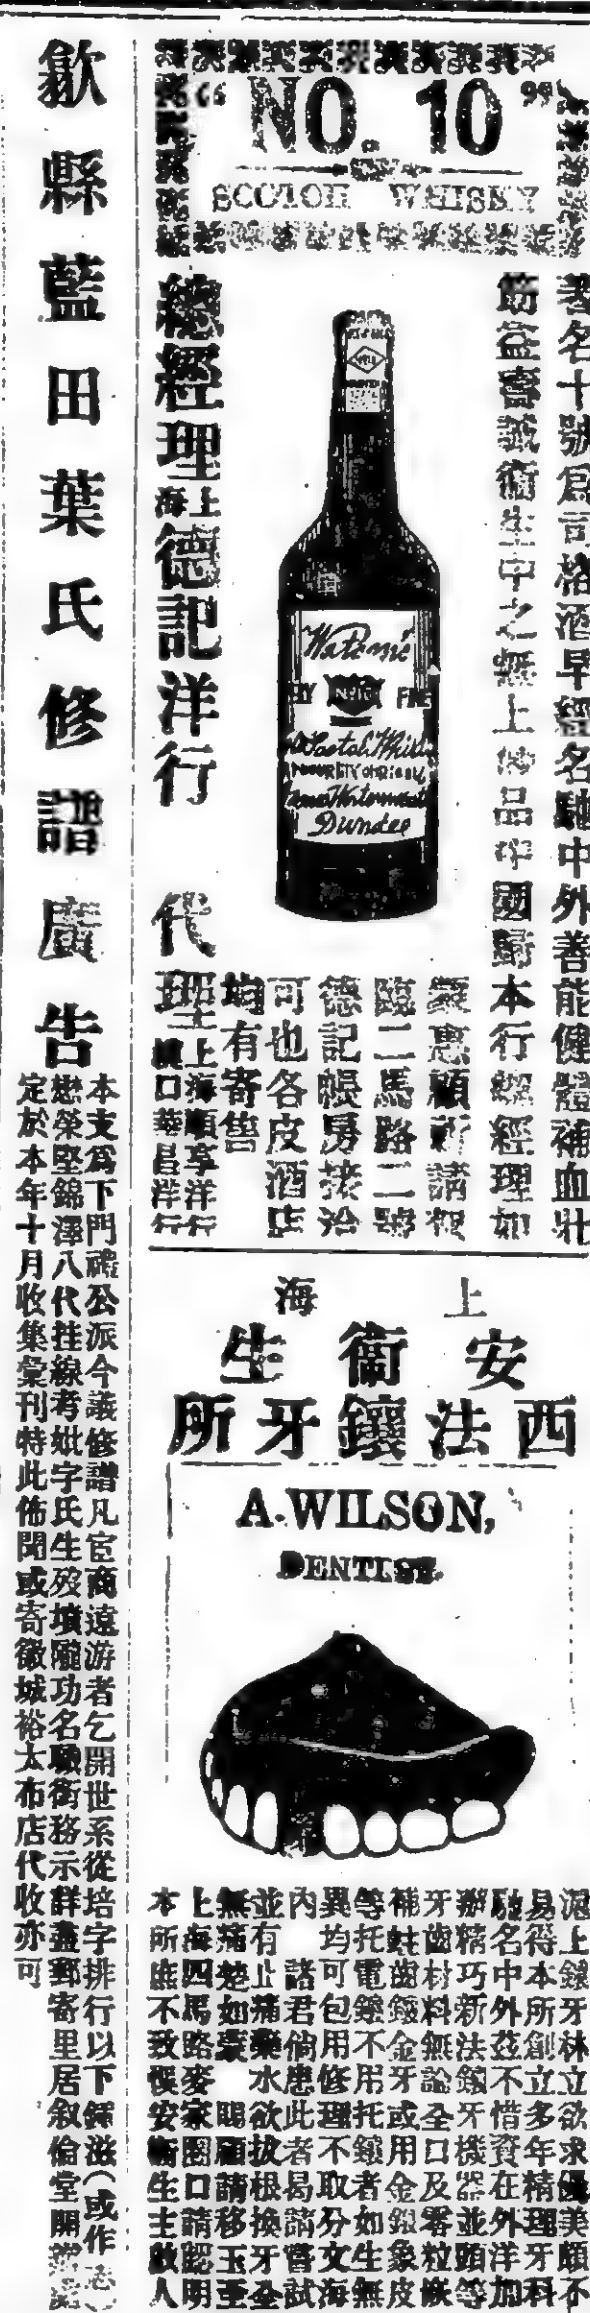 "NO. 10"
SCOTCH WHISKY
著名十號爲司格酒早經名馳中外善能健體補血壯
筋益壽誠衛生中之無上妙品中國歸本行總經理如
蒙惠顧祈請
臨二馬路二號
德記帳房接洽
可也各皮酒店
均有寄售
總經理上海德記洋行
代理上海順享洋行
漢口華昌洋行
Dundee
上海
安衛生
西法鑲牙所
A. WILSON,
DENTIST
滬上鑲牙林立欲求優美頗不
易得本所創立多年精理牙科
馳名中外茲不惜資在外洋加
辦精巧新法鑲牙機器並頭等
牙齒材料無論全口及零粒
補蛀齒鑲金牙或用金銀象皮
等托電鍍不用托鑲者如生無
異均可包用修理不取分文海
內諸君倘患此者曷請嘗試
並有止痛藥水欲拔根換牙全
無痛楚如蒙賜顧請移玉至
上海四馬路麥家圈口請認明
本所庶不致悞安衛生主人啟
歙縣藍田葉氏修譜廣告
本支爲下門禮公派今議修譜凡官商遠游者乞開世系從培字排行以下鍾滋(或作
懋榮堅錦澤八代挂線考妣字氏生歿墳隴功名職銜務示詳盡郵寄里居叙倫堂開
定於本年十月收集彙刊特此佈聞或寄徽城裕大布店代收亦可